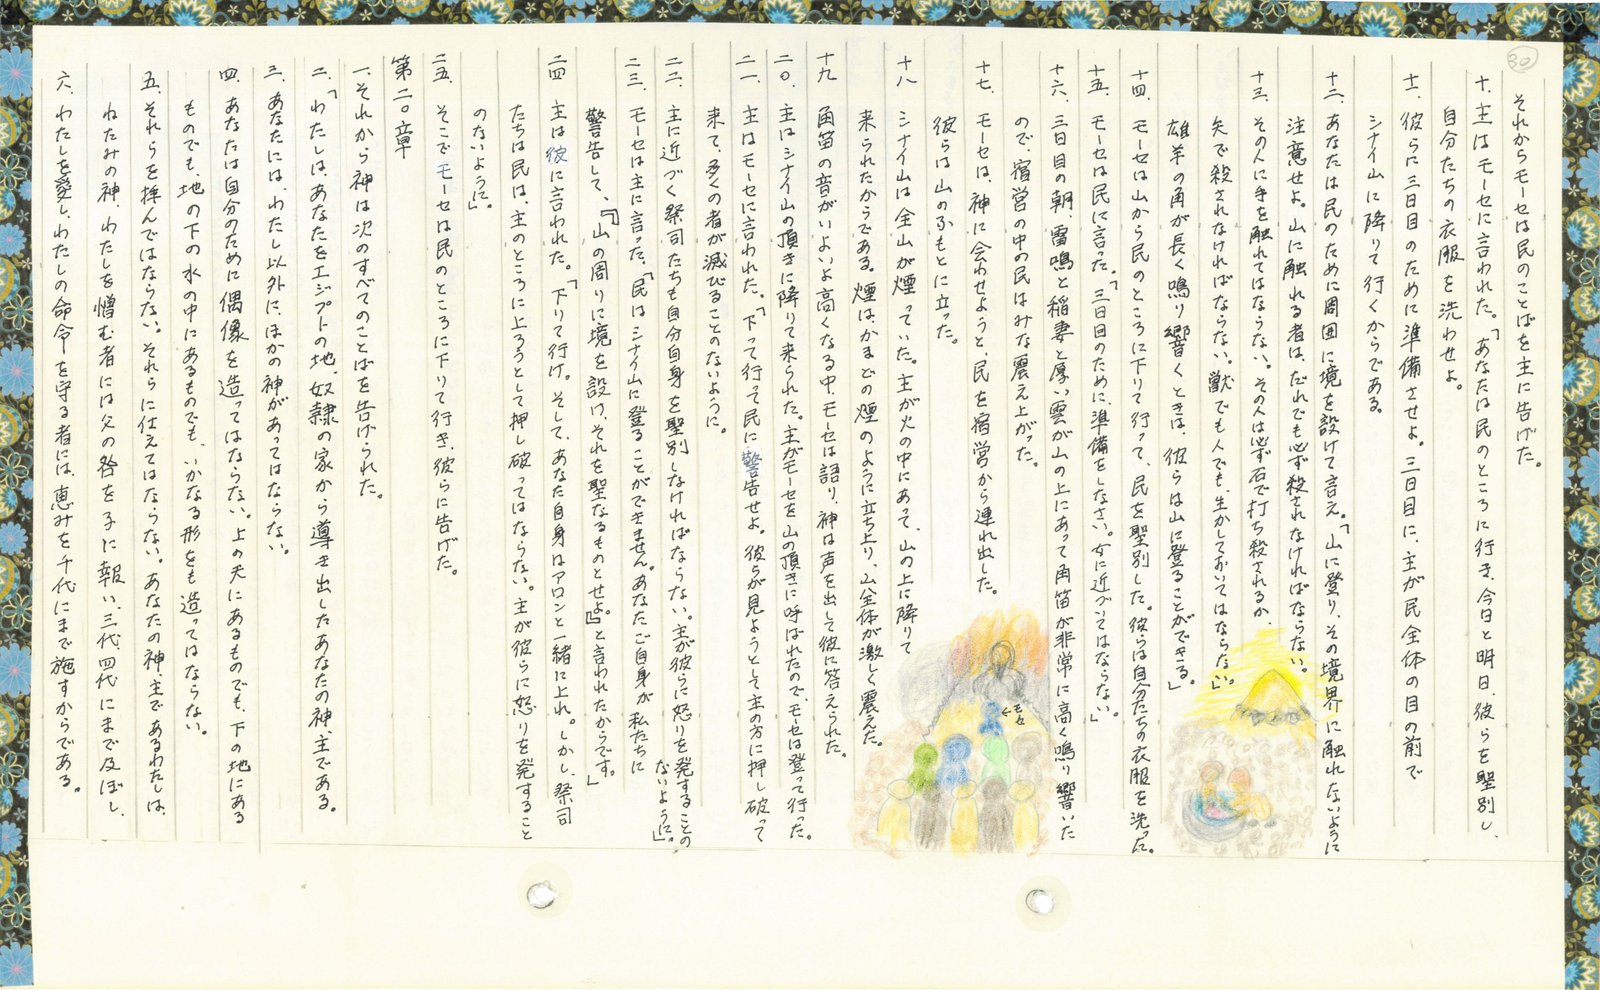 30
それからモーセは民のことばを主に告げた。
十、主はモーセに言われた。「あなたは民のところに行き、今日と明日、彼らを聖別し、
自分たちの衣服を洗わせよ。
十一、彼らに三日目のために準備させよ。三日目に、主が民全体の目の前で
シナイ山に降りて行くからである。
十二、あなたは民のために周囲に境を設けて言え。『山に登り、その境界に触れないように
注意せよ。山に触れる者は、だれでも必ず殺されなければならない。
十三、その人に手を触れてはならない。その人は必ず石で打ち殺されるか、
矢で殺されなければならない。獣でも人でも、生かしておいてはならない。』
雄羊の角が長く鳴り響くときは、彼らは山に登ることができる。」
十四、モーセは山から民のところに下りて行って、民を聖別した。彼らは自分たちの衣服を洗った。
十五、モーセは民に言った。「三日目のために、準備をしなさい。女に近づいてはならない。」
十六、三日目の朝、雷鳴と稲妻と厚い雲が山の上にあって角笛が非常に高く鳴り響いた
ので、宿営の中の民はみな震え上がった。
十七、モーセは、神に会わせようと、民を宿営から連れ出した。
彼らは山のふもとに立った。
十八 シナイ山は全山が煙っていた。主が火の中にあって、山の上に降りて
来られたからである。煙は、かまどの煙のように立ち上り、山全体が激しく震えた。
十九 角笛の音がいよいよ高くなる中、モーセは語り、神は声を出して彼に答えられた。
二〇、主はシナイ山の頂きに降りて来られた。主がモーセを山の頂きに呼ばれたので、モーセは登って行った。
二一、主はモーセに言われた。「下って行って民に警告せよ。彼らが見ようとして主の方に押し破って
来て、多くの者が滅びることのないように。
二二、主に近づく祭司たちも自分自身を聖別しなければならない。主が彼らに怒りを発することの
ないように」。
二三、モーセは主に言った、「民はシナイ山に登ることができません。あなたご自身が私たちに
警告して、『山の周りに境を設け、それを聖なるものとせよ。』と言われたからです。」
二四 主は彼に言われた。「下りて行け。そして、あなた自身はアロンと一緒に上れ。しかし、祭司
たちは民は、主のところに上ろうとして押し破ってはならない。主が彼らに怒りを発すること
のないように」。
二五、そこでモーセは民のところに下りて行き、彼らに告げた。
第二〇章
一、それから神は次のすべてのことばを告げられた。
二、「わたしは、あなたをエジプトの地、奴隷の家から導き出したあなたの神、主である。
三、あなたには、わたし以外に、ほかの神があってはならない。
四、あなたは自分のために偶像を造ってはならない。上の天にあるものでも、下の地にある
ものでも、地の下の水の中にあるものでも、いかなる形をも造ってはならない。
五、それらを拝んではならない。それらに仕えてはならない。あなたの神、主であるわたしは、
ねたみの神。わたしを憎む者には父の咎を子に報い、三代、四代にまで及ぼし、
六、わたしを愛し、わたしの命令を守る者には、恵みを千代にまで施すからである。
←モーセ